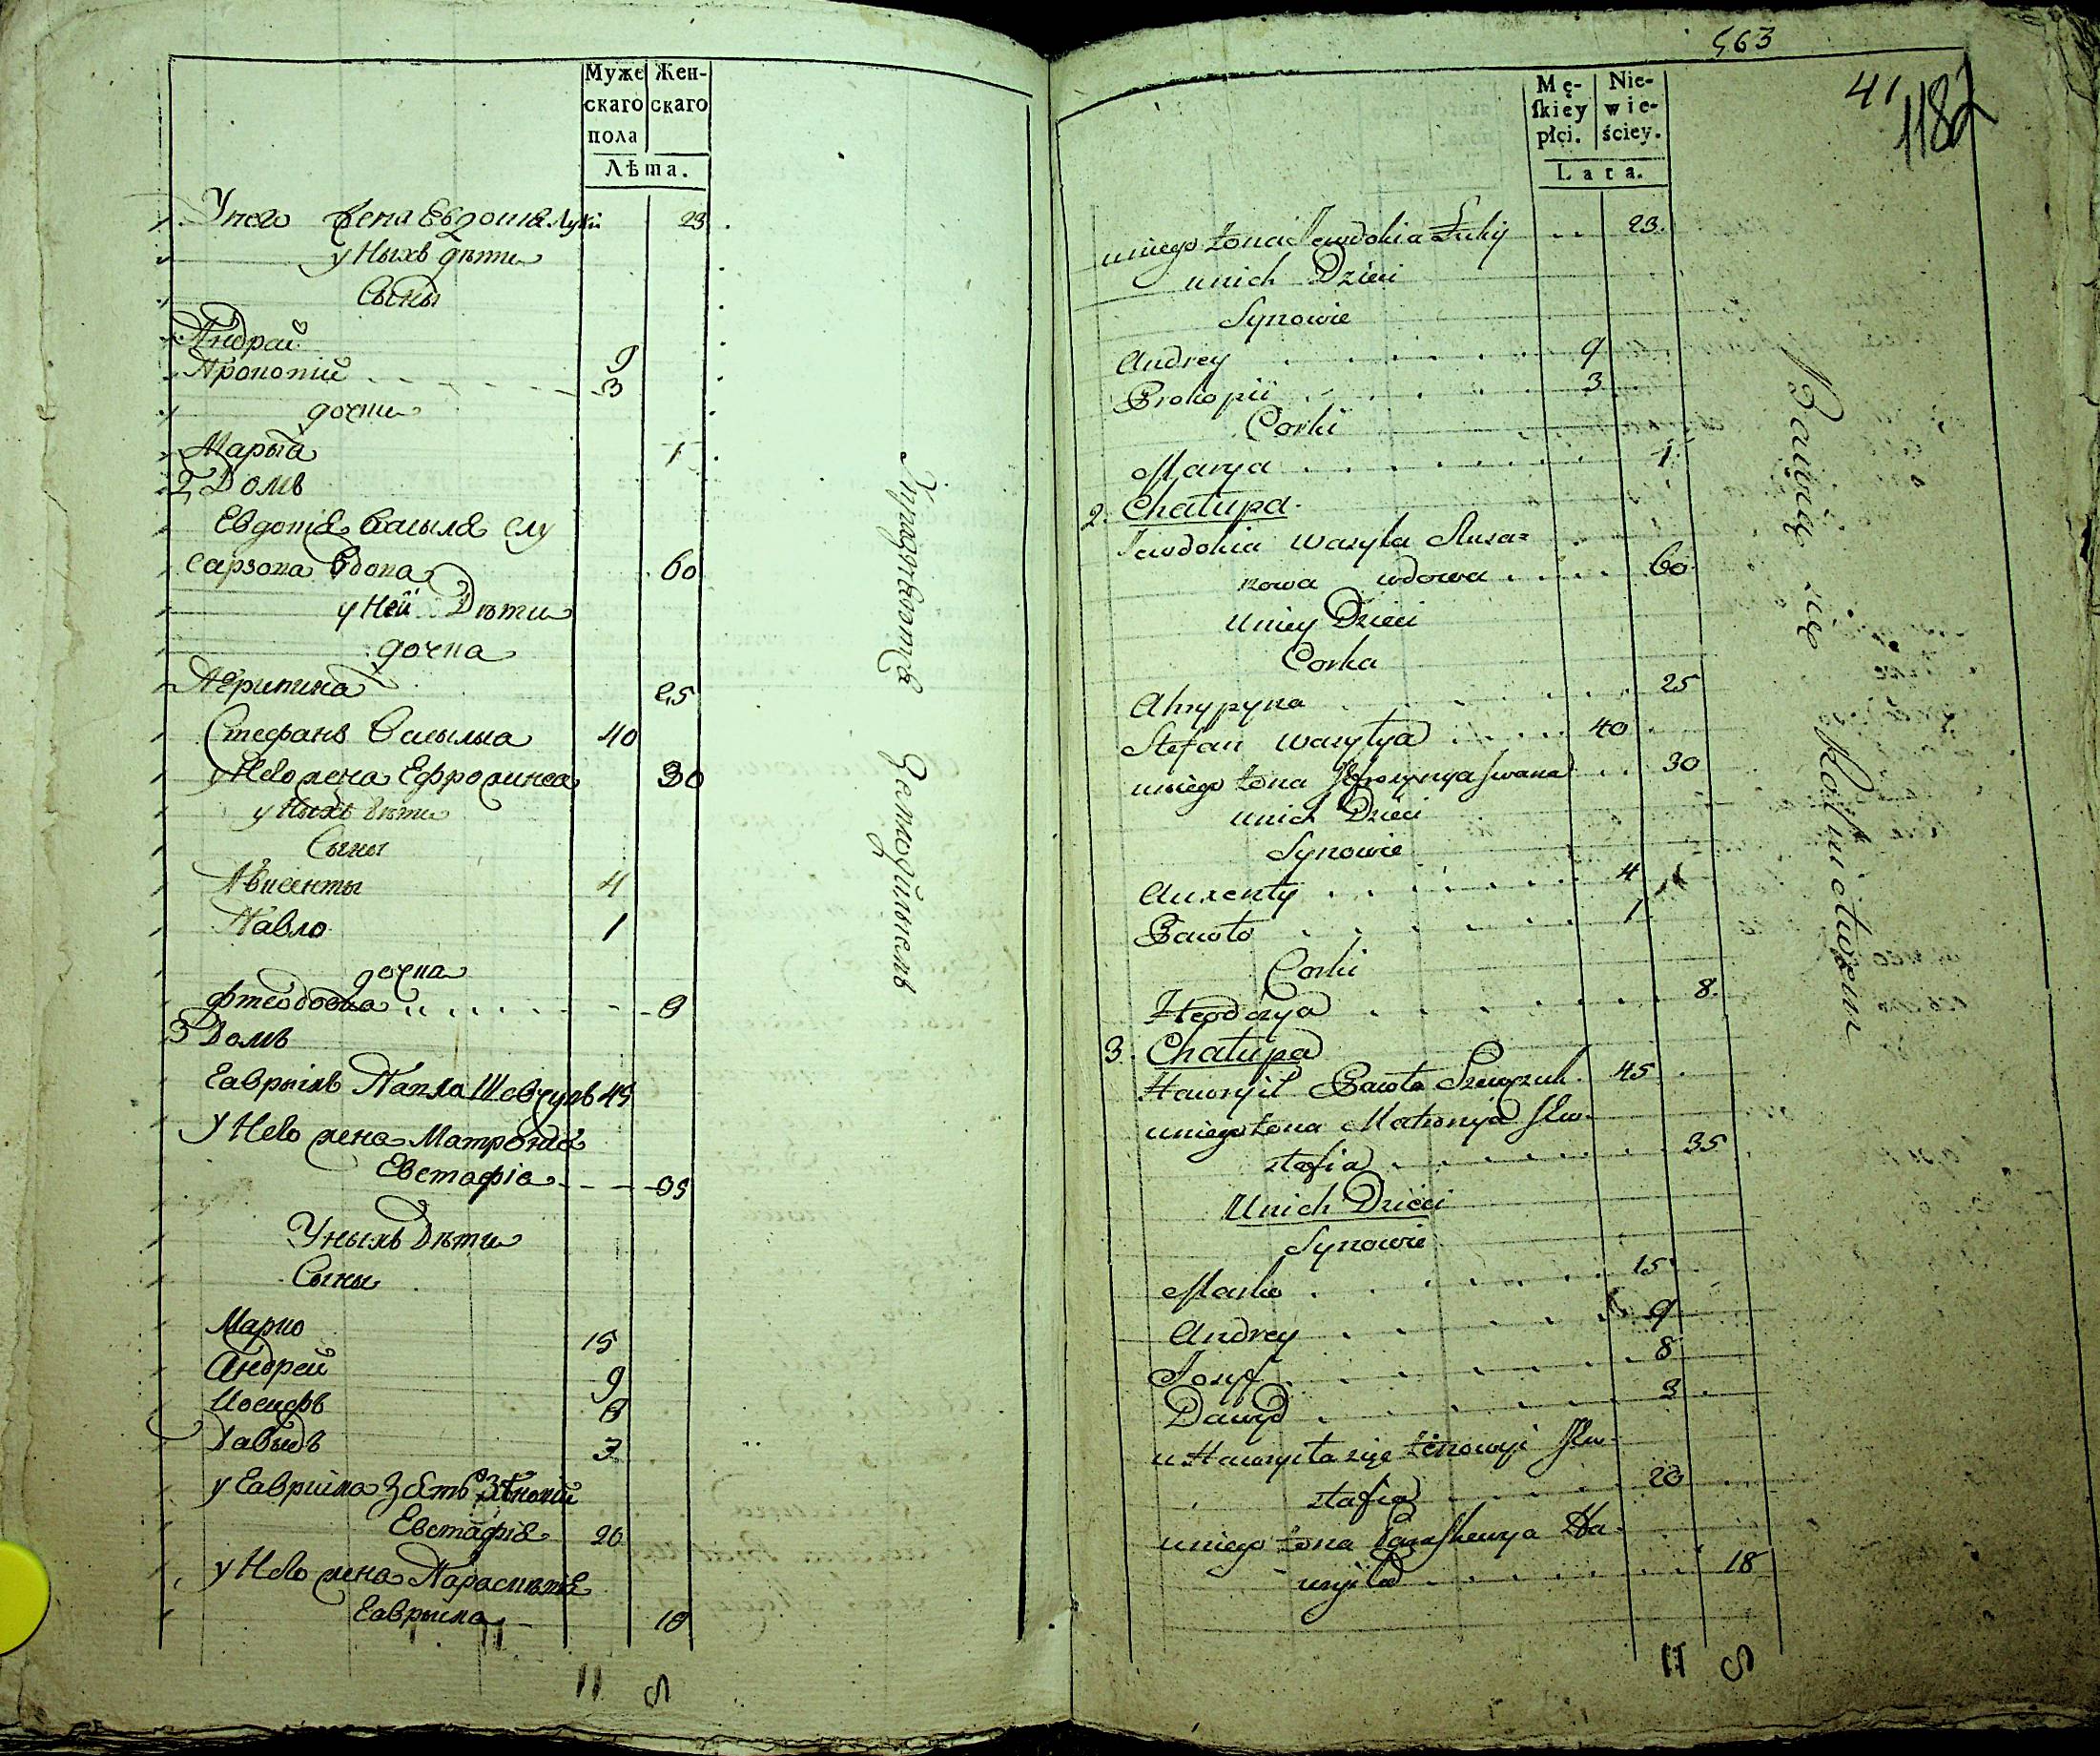 Муже Жен-
скаго скаго
пола
Лѣта.
У него жена Евдокия Луки 23
у Ныхъ дѣти
Сыны
Андрай 9
Прокопiй 3
дочки
Марыа 1
2 Домъ
Евдокiя Васыля Слу
сарзона вдова 60
у Неи Дѣти
дочка
Агрипина 25
Стефанъ Васылыа 40
у Него жена Ефросинеа 30
у Ныхъ дѣти
Сыны
Авксенты 4
Павло 1
дочка
8
3 Домъ
Гаврыилъ Павла Шевчукъ 45
у Него жена Матронiа
Евстафiа 35
У ныхъ Дѣти
Сыны
Марко 15
Андрей 9
Иосифъ 8
Давыдъ 3
у Гаврыила Зять Зѣновiй
Евстафiя 20
у Него жена Параскевiя
Гаврыила 18
11 5
Упражняются Хлѣбопашествомъ
563
41
1182
Mę- Nie-
skiey wie-
płci. ściey.
Lata.
u niego żona Jewdokia Łukij 23
u nich Dzieci
Synowie
Andrey 9
Prokopii 3
Corki
Marya 1
2. Chałupa
Jewdokia Wasyla Slusa=
rzowa wdowa 60
u niey Dzieci
Corka
Ahrypyna 25
Stefan Wasylya 40
u niego żona Jefrosynya Iwana 30
u nich Dzieci
Synowie
Auxenty 4
Pawło 1
Corki
Fteodozya 8
3. Chałupa
Hawryił Pawła Szewczuk 45
u niego żona Matronija Jew-
stafia 35
U nich Dzieci
Synowie
Marko 15
Andrey 9
Josyf 8
Dawyd 3
u Hawryła zięć Zenowyi Jew-
stafia 20
u niego żona Paraskewya Ha-
wryiła 18
11 5
Bawią się Rolnictwem